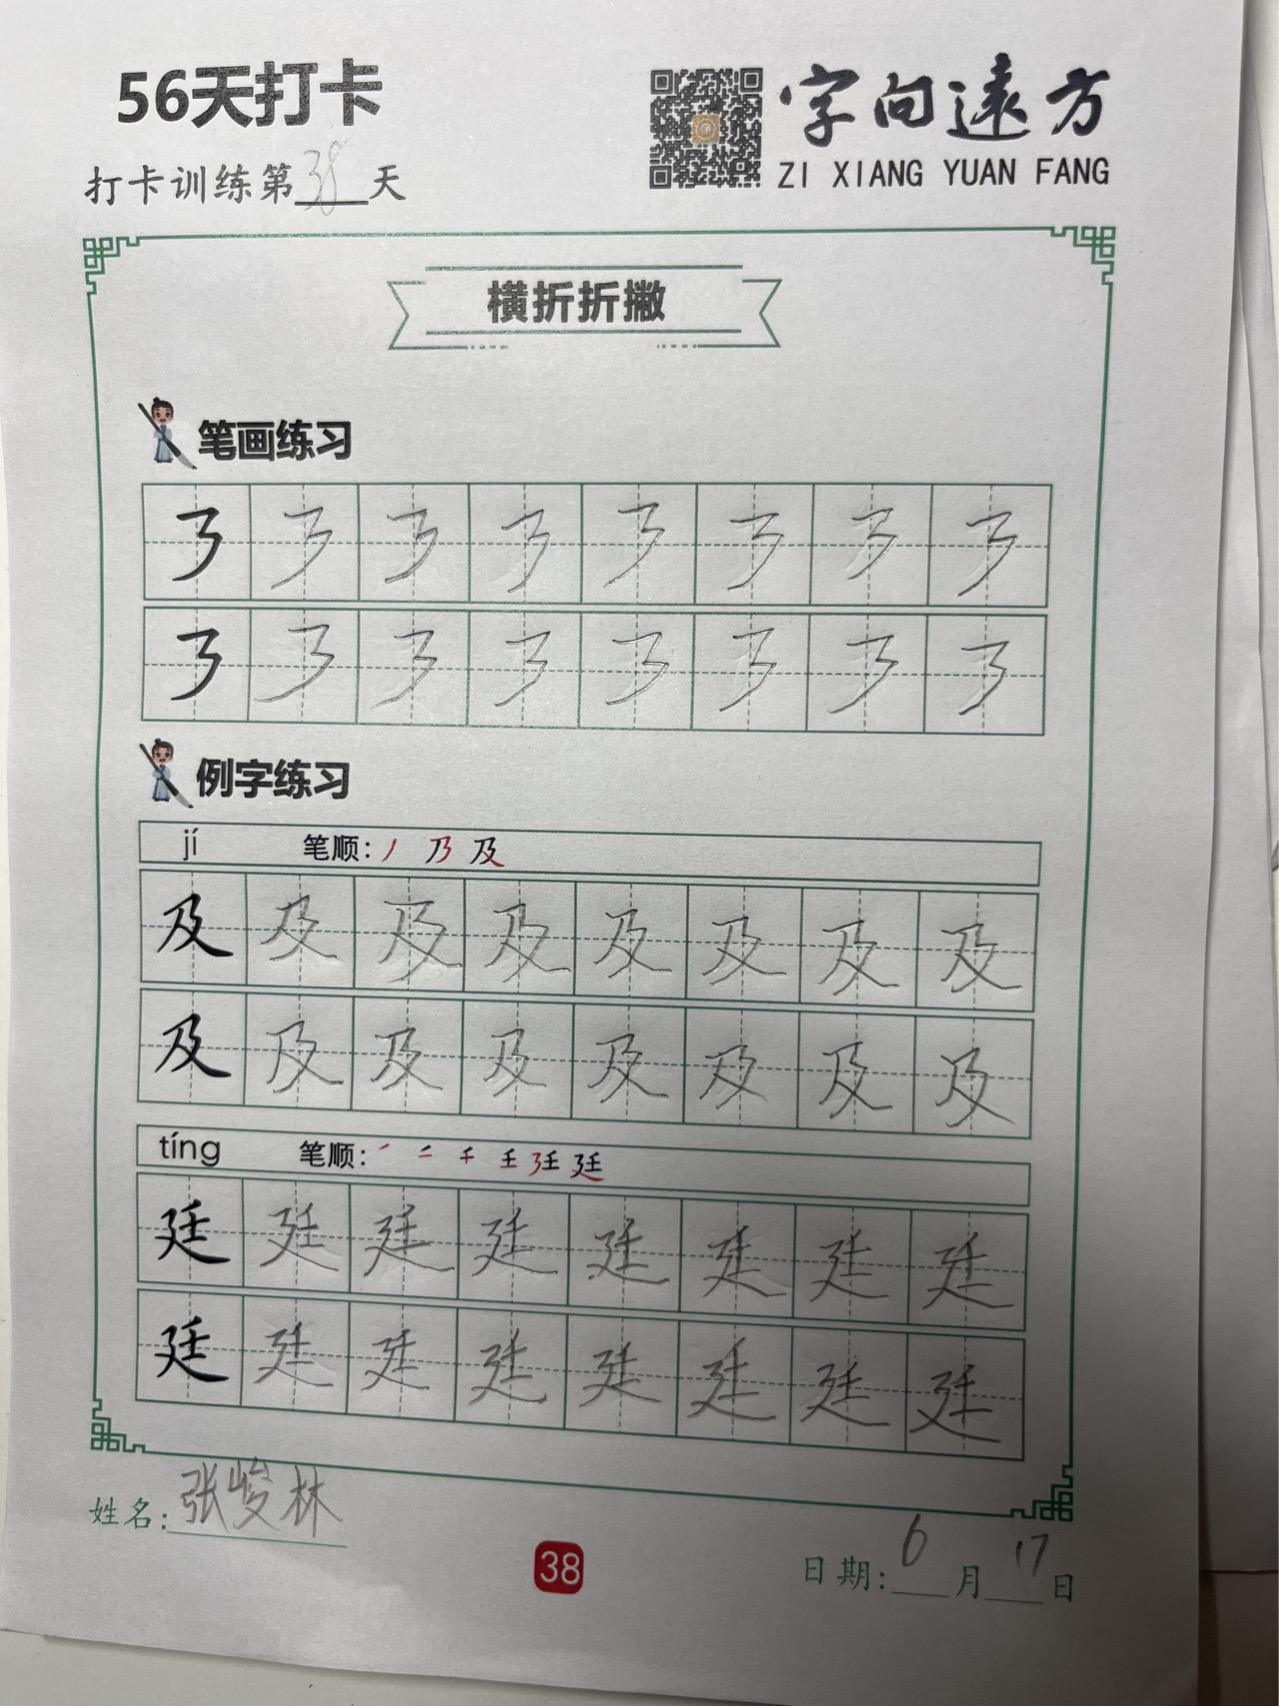 56天打卡
字向遠方
打卡训练第38天
ZI XIANG YUAN FANG
横折折撇
笔画练习
㇋ ㇋ ㇋ ㇋ ㇋ ㇋ ㇋ ㇋
㇋ ㇋ ㇋ ㇋ ㇋ ㇋ ㇋ ㇋
例字练习
jí 笔顺：丿 乃 及
及 及 及 及 及 及 及 及
及 及 及 及 及 及 及 及
tíng 笔顺：
廷 廷 廷 廷 廷 廷 廷 廷
廷 廷 廷 廷 廷 廷 廷 廷
姓名：张峻林
38
日期：6月17日